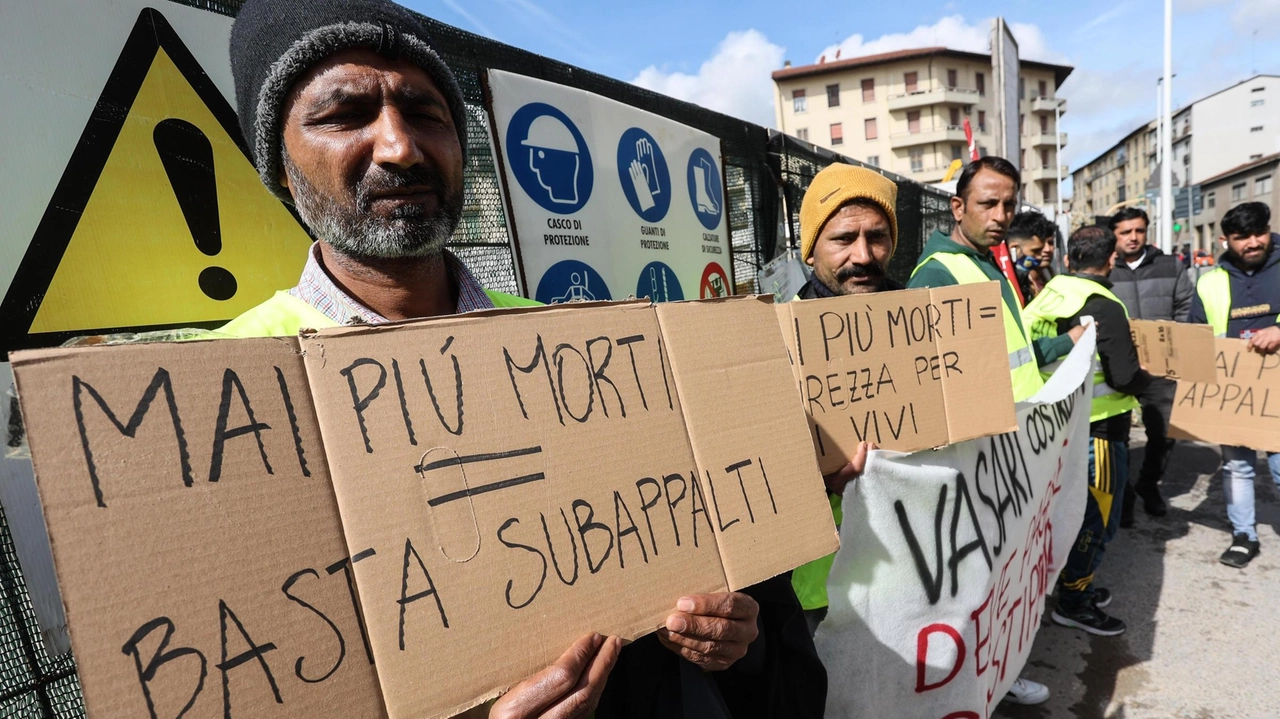 CASCO DI
PROTEZIONE
GUANTI DI
PROTEZIONE
CALZATURE
DI SICUREZZA
MAI PIÚ MORTI
=
BASTA SUBAPPALTI
I PIÙ MORTI =
REZZA PER
I VIVI
VASARI COSTRU
DEVE
MAI P
APPAL